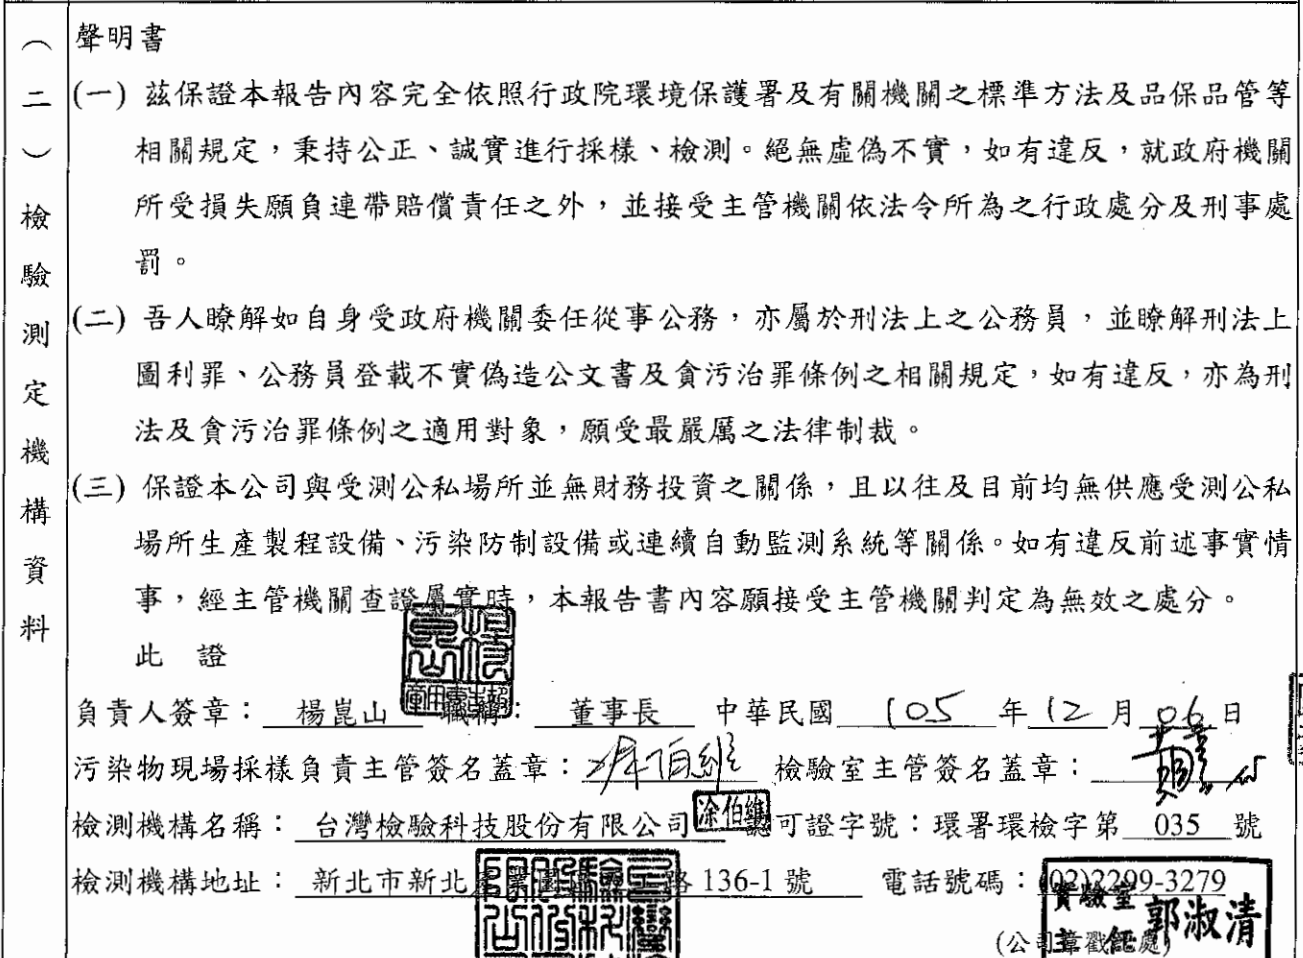 (二)檢驗測定機構資料
聲明書
(一) 茲保證本報告內容完全依照行政院環境保護署及有關機關之標準方法及品保品管等
相關規定，秉持公正、誠實進行採樣、檢測。絕無虛偽不實，如有違反，就政府機關
所受損失願負連帶賠償責任之外，並接受主管機關依法令所為之行政處分及刑事處
罰。
(二) 吾人瞭解如自身受政府機關委任從事公務，亦屬於刑法上之公務員，並瞭解刑法上
圖利罪、公務員登載不實偽造公文書及貪污治罪條例之相關規定，如有違反，亦為刑
法及貪污治罪條例之適用對象，願受最嚴厲之法律制裁。
(三) 保證本公司與受測公私場所並無財務投資之關係，且以往及目前均無供應受測公私
場所生產製程設備、污染防制設備或連續自動監測系統等關係。如有違反前述事實情
事，經主管機關查證屬實時，本報告書內容願接受主管機關判定為無效之處分。
此 證
負責人簽章： 楊崑山 職稱： 董事長 中華民國 105 年 12 月 06 日
污染物現場採樣負責主管簽名蓋章： 涂伯維 檢驗室主管簽名蓋章：
檢測機構名稱： 台灣檢驗科技股份有限公司 涂伯維 認可證字號：環署環檢字第 035 號
檢測機構地址： 新北市新北 路 136-1 號 電話號碼： (02)2299-3279
實驗室主任 郭淑清
(公司章戳記處)